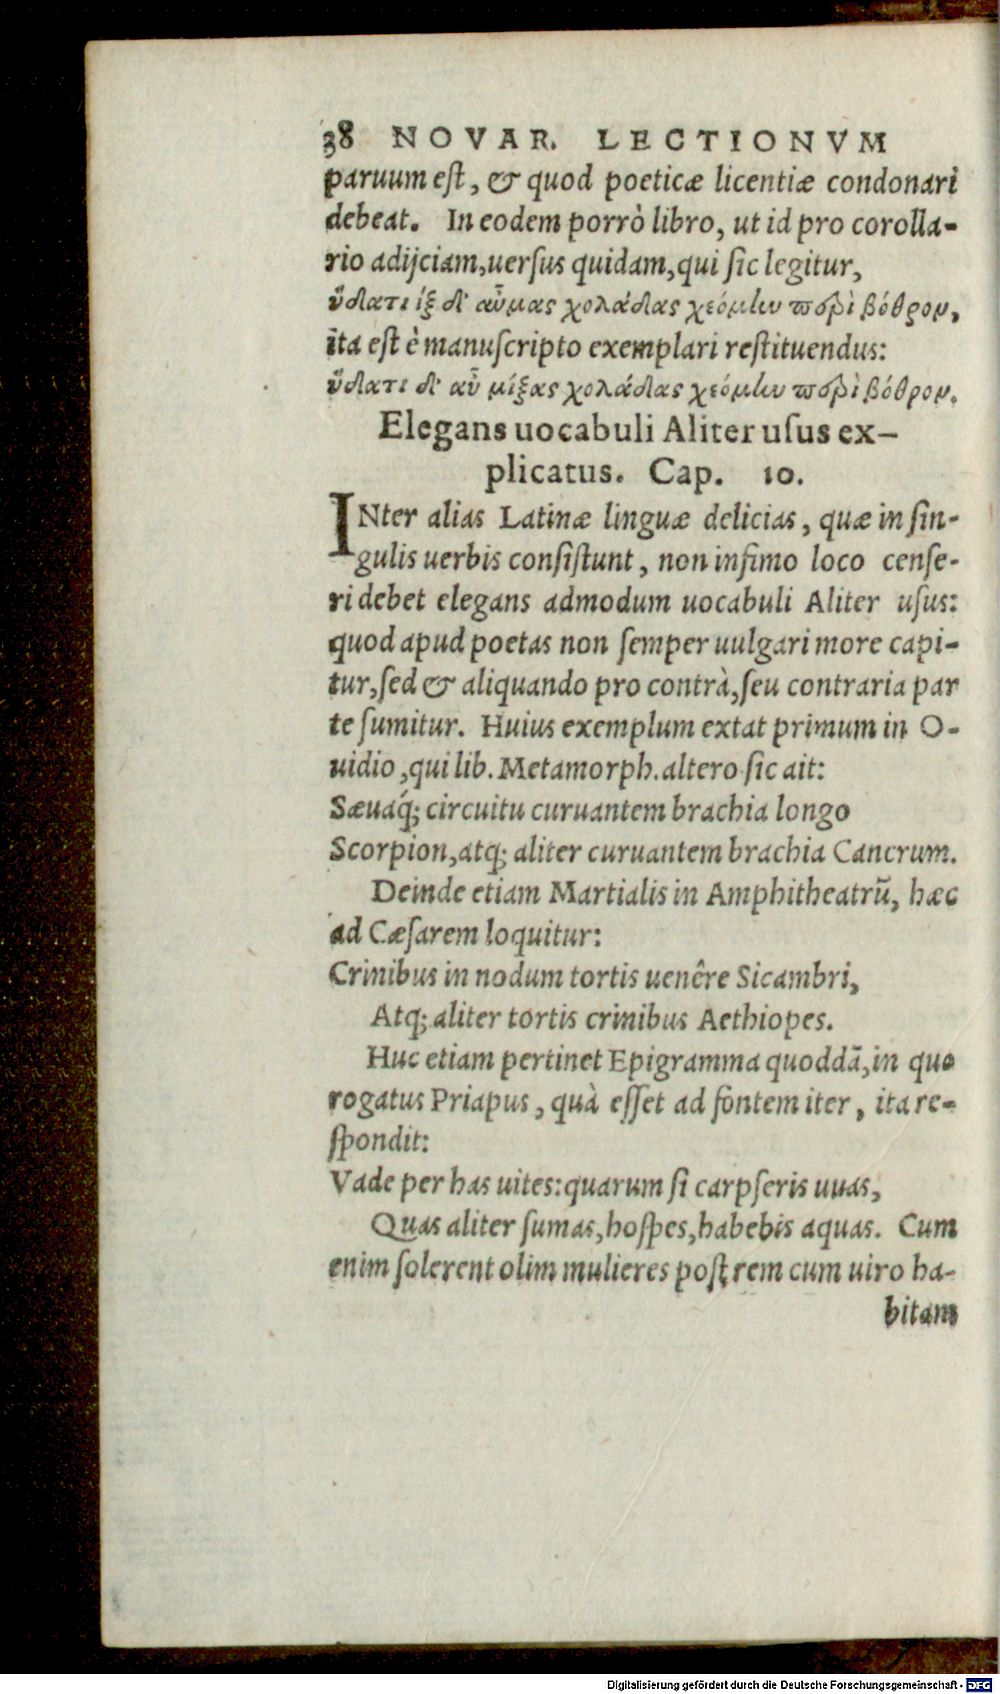 38 NOVAR. LECTIONVM
paruum est, & quod poeticæ licentiæ condonari
debeat. In eodem porrò libro, ut id pro corolla-
rio adijciam, uersus quidam, qui sic legitur,
ὕδατι ἰξ δ' αὖμας χολάδας χεόμlω περὶ βόθρον,
ita est è manuscripto exemplari restituendus:
ὕδατι δ' αὖ μίξας χολάδας χεόμlω περὶ βόθρον.
Elegans uocabuli Aliter usus ex-
plicatus. Cap. 10.
INter alias Latinæ linguæ delicias, quæ in sin-
gulis uerbis consistunt, non infimo loco cense-
ri debet elegans admodum uocabuli Aliter usus:
quod apud poetas non semper uulgari more capi-
tur, sed & aliquando pro contrà, seu contraria par
te sumitur. Huius exemplum extat primum in O-
uidio, qui lib. Metamorph. altero sic ait:
Sæuaq́; circuitu curuantem brachia longo
Scorpion, atq; aliter curuantem brachia Cancrum.
Deinde etiam Martialis in Amphitheatrũ, hæc
ad Cæsarem loquitur:
Crinibus in nodum tortis uenêre Sicambri,
Atq; aliter tortis crinibus Aethiopes.
Huc etiam pertinet Epigramma quoddã, in quo
rogatus Priapus, quà esset ad fontem iter, ita re-
spondit:
Vade per has uites: quarum si carpseris uuas,
Quas aliter sumas, hospes, habebis aquas. Cum
enim solerent olim mulieres post rem cum uiro ha-
bitam
Digitalisierung gefördert durch die Deutsche Forschungsgemeinschaft - DFG